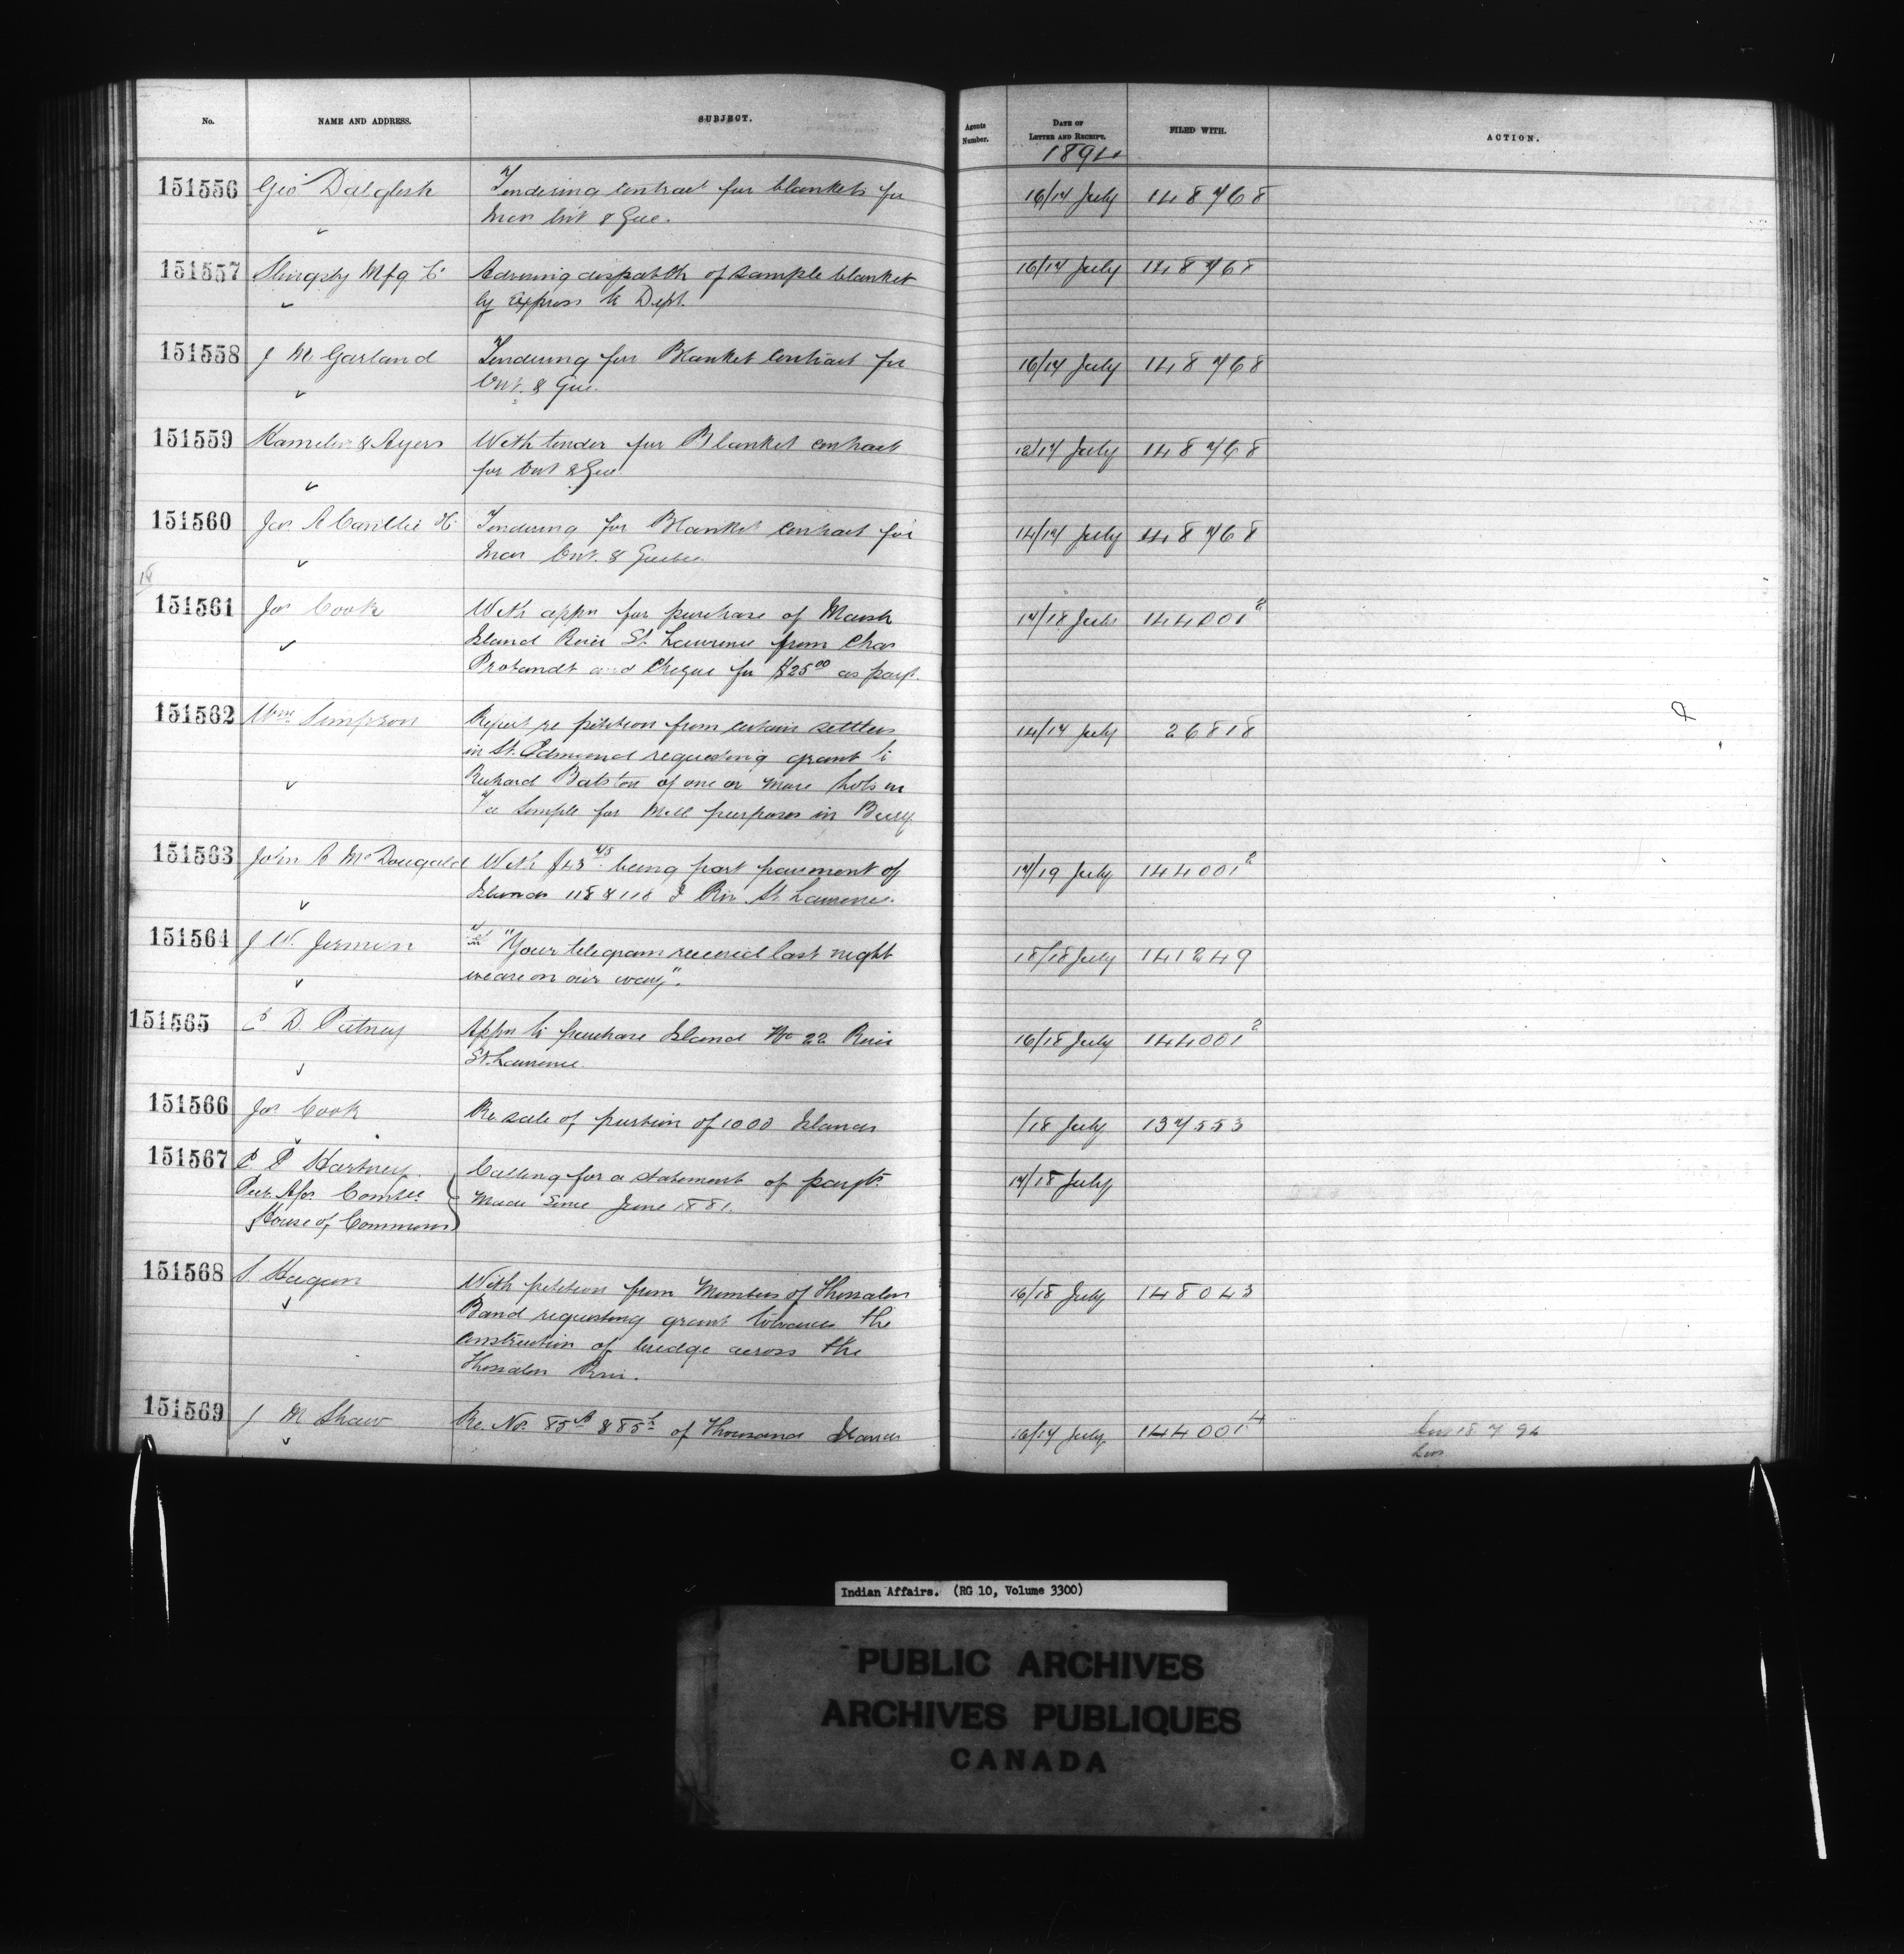 No. NAME AND ADDRESS. SUBJECT. Agents Number. DATE OF LETTER AND RECEIPT. FILED WITH. ACTION.
1894
151556 Geo Dalglish Tendering contract for blankets for 16/17 July 148768
Ont & Que.
151557 Slingsby Mfg Co Advising dispatch of sample blanket 16/17 July 148768
by Express to Dept.
151558 J M Garland Tendering for Blanket contract for 16/17 July 148768
Ont. & Que.
151559 & Ayers With tender for Blanket contract 148768
for Ont & Que
151560 Jas A Cantlie Tendering for Blanket contract for 14/17 July 148768
Ont. & Quebec
151561 Jas Cook With appn for purchase of Marsh 17/18 July 144001²
Island River St. Lawrence from Chas
and Cheque for $25⁰⁰ as payt.
151562 Wm Simpson Report re petition from certain settlers 14/17 July 26818
in St. Edmund requesting grant to
Richard of one or more lots in
Fee Simple for Mill purposes in Bury
151563 John A McDougald With being part payment of 17/19 July 144001²
Islands Riv. St. Lawrence.
151564 J W. Jermyn "Your telegram received last night 18/18 July 141249
we are on our way".
151565 D. Putney Appn to purchase Island No 22 River 16/18 July 144001²
St. Lawrence
151566 Jas Cook Re sale of portion of 1000 Islands /18 July 137553
151567 E P Hartney Calling for a statement of payts 17/18 July
Comtee made since June 1881.
House of Commons
151568 S Hagan With petition from Members of Thessalon 16/18 July 148043
Band requesting grant towards the
construction of bridge across the
Thessalon River.
151569 J M Shaw Re. Nos. of Thousand Islands 16/17 July 144001⁴
18 7 94
Indian Affairs. (RG 10, Volume 3300)
PUBLIC ARCHIVES
ARCHIVES PUBLIQUES
CANADA